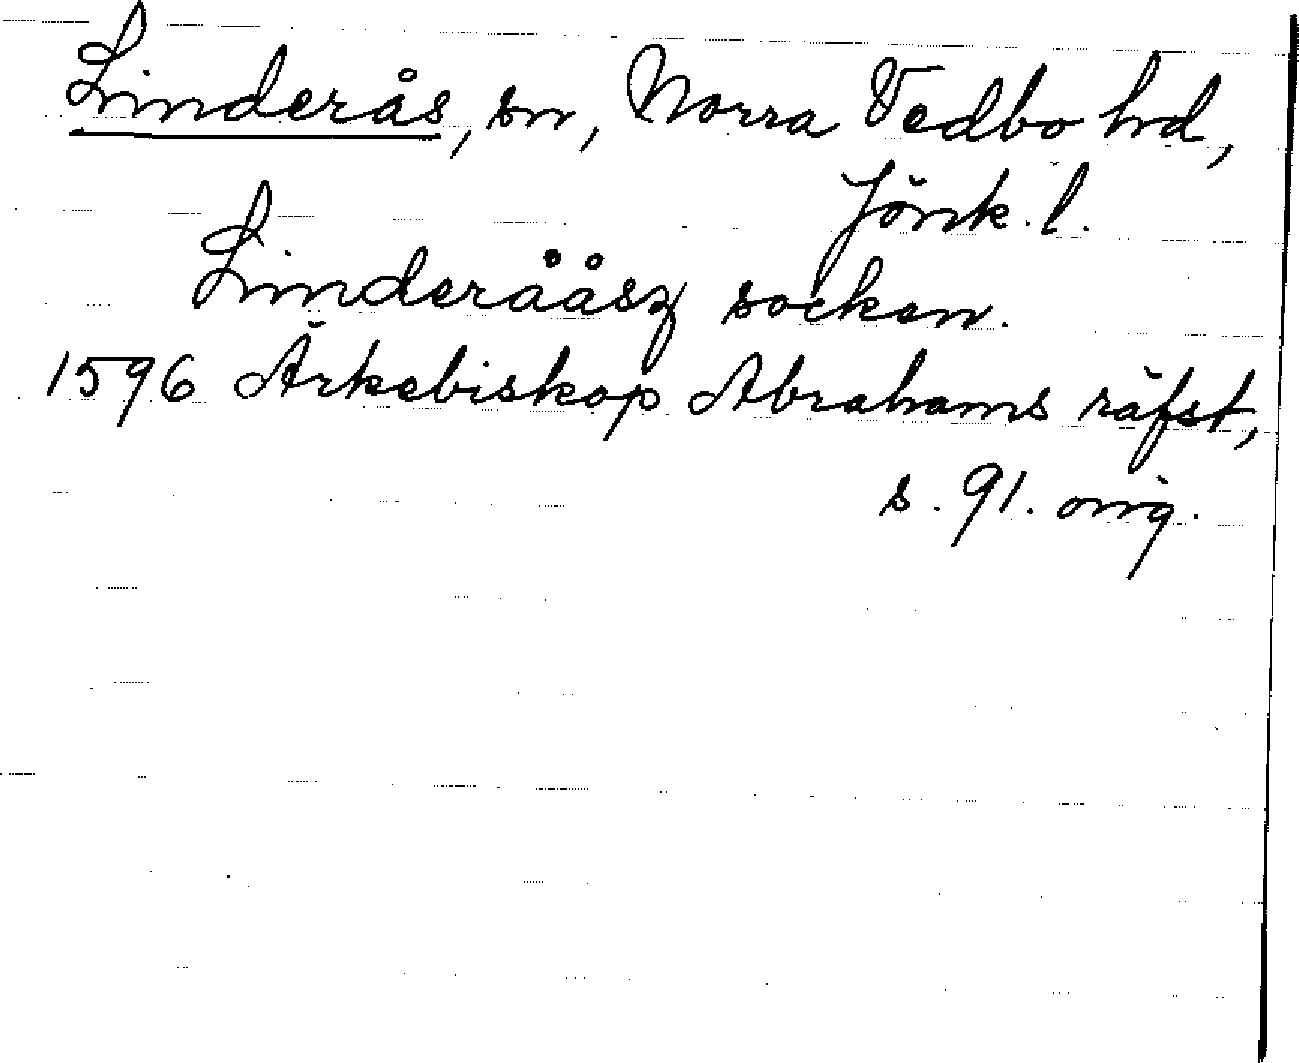 Linderås, sn, Norra Vedbo hd,
Jönk. l.
Linderååsz socken.
1596 Ärkebiskop Abrahams räfst,
s. 91. orig.